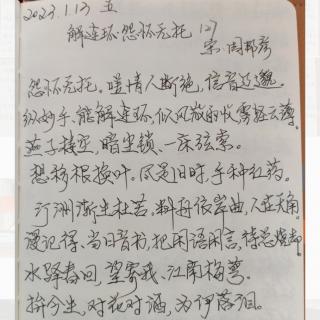 2023.1.13 五
解连环·怨怀无托 127
宋 周邦彦
怨怀无托。嗟情人断绝，信音辽邈。
纵妙手、能解连环，似风散雨收，雾轻云薄。
燕子楼空，暗尘锁、一床弦索。
想移根换叶。尽是旧时，手种红药。
汀洲渐生杜若。料舟依岸曲，人在天角。
漫记得、当日音书，把闲语闲言，待总烧却。
水驿春回，望寄我、江南梅萼。
拚今生，对花对酒，为伊落泪。